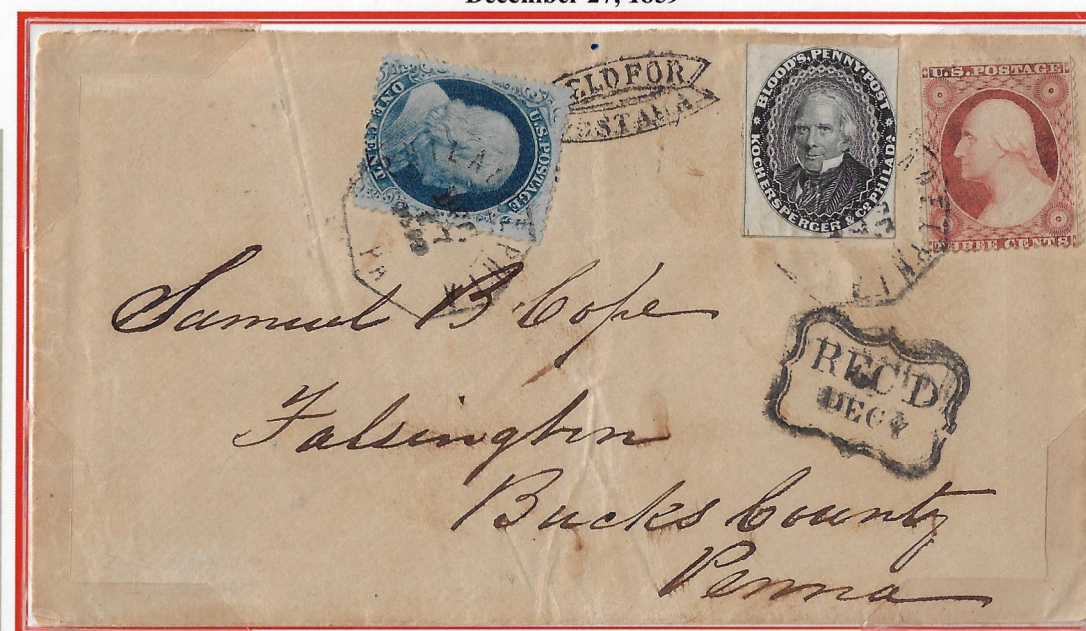 December 27, 1859
U.S. POSTAGE
ONE CENT
ELD FOR
OSTAGE
BLOOD'S PENNY-POST
KOCHERSPERGER & CO. PHILADA.
U.S. POSTAGE
THREE CENTS
PHILADELPHIA
PA
REC'D
DEC
Samuel B Cope
Falsington
Bucks County
Penna